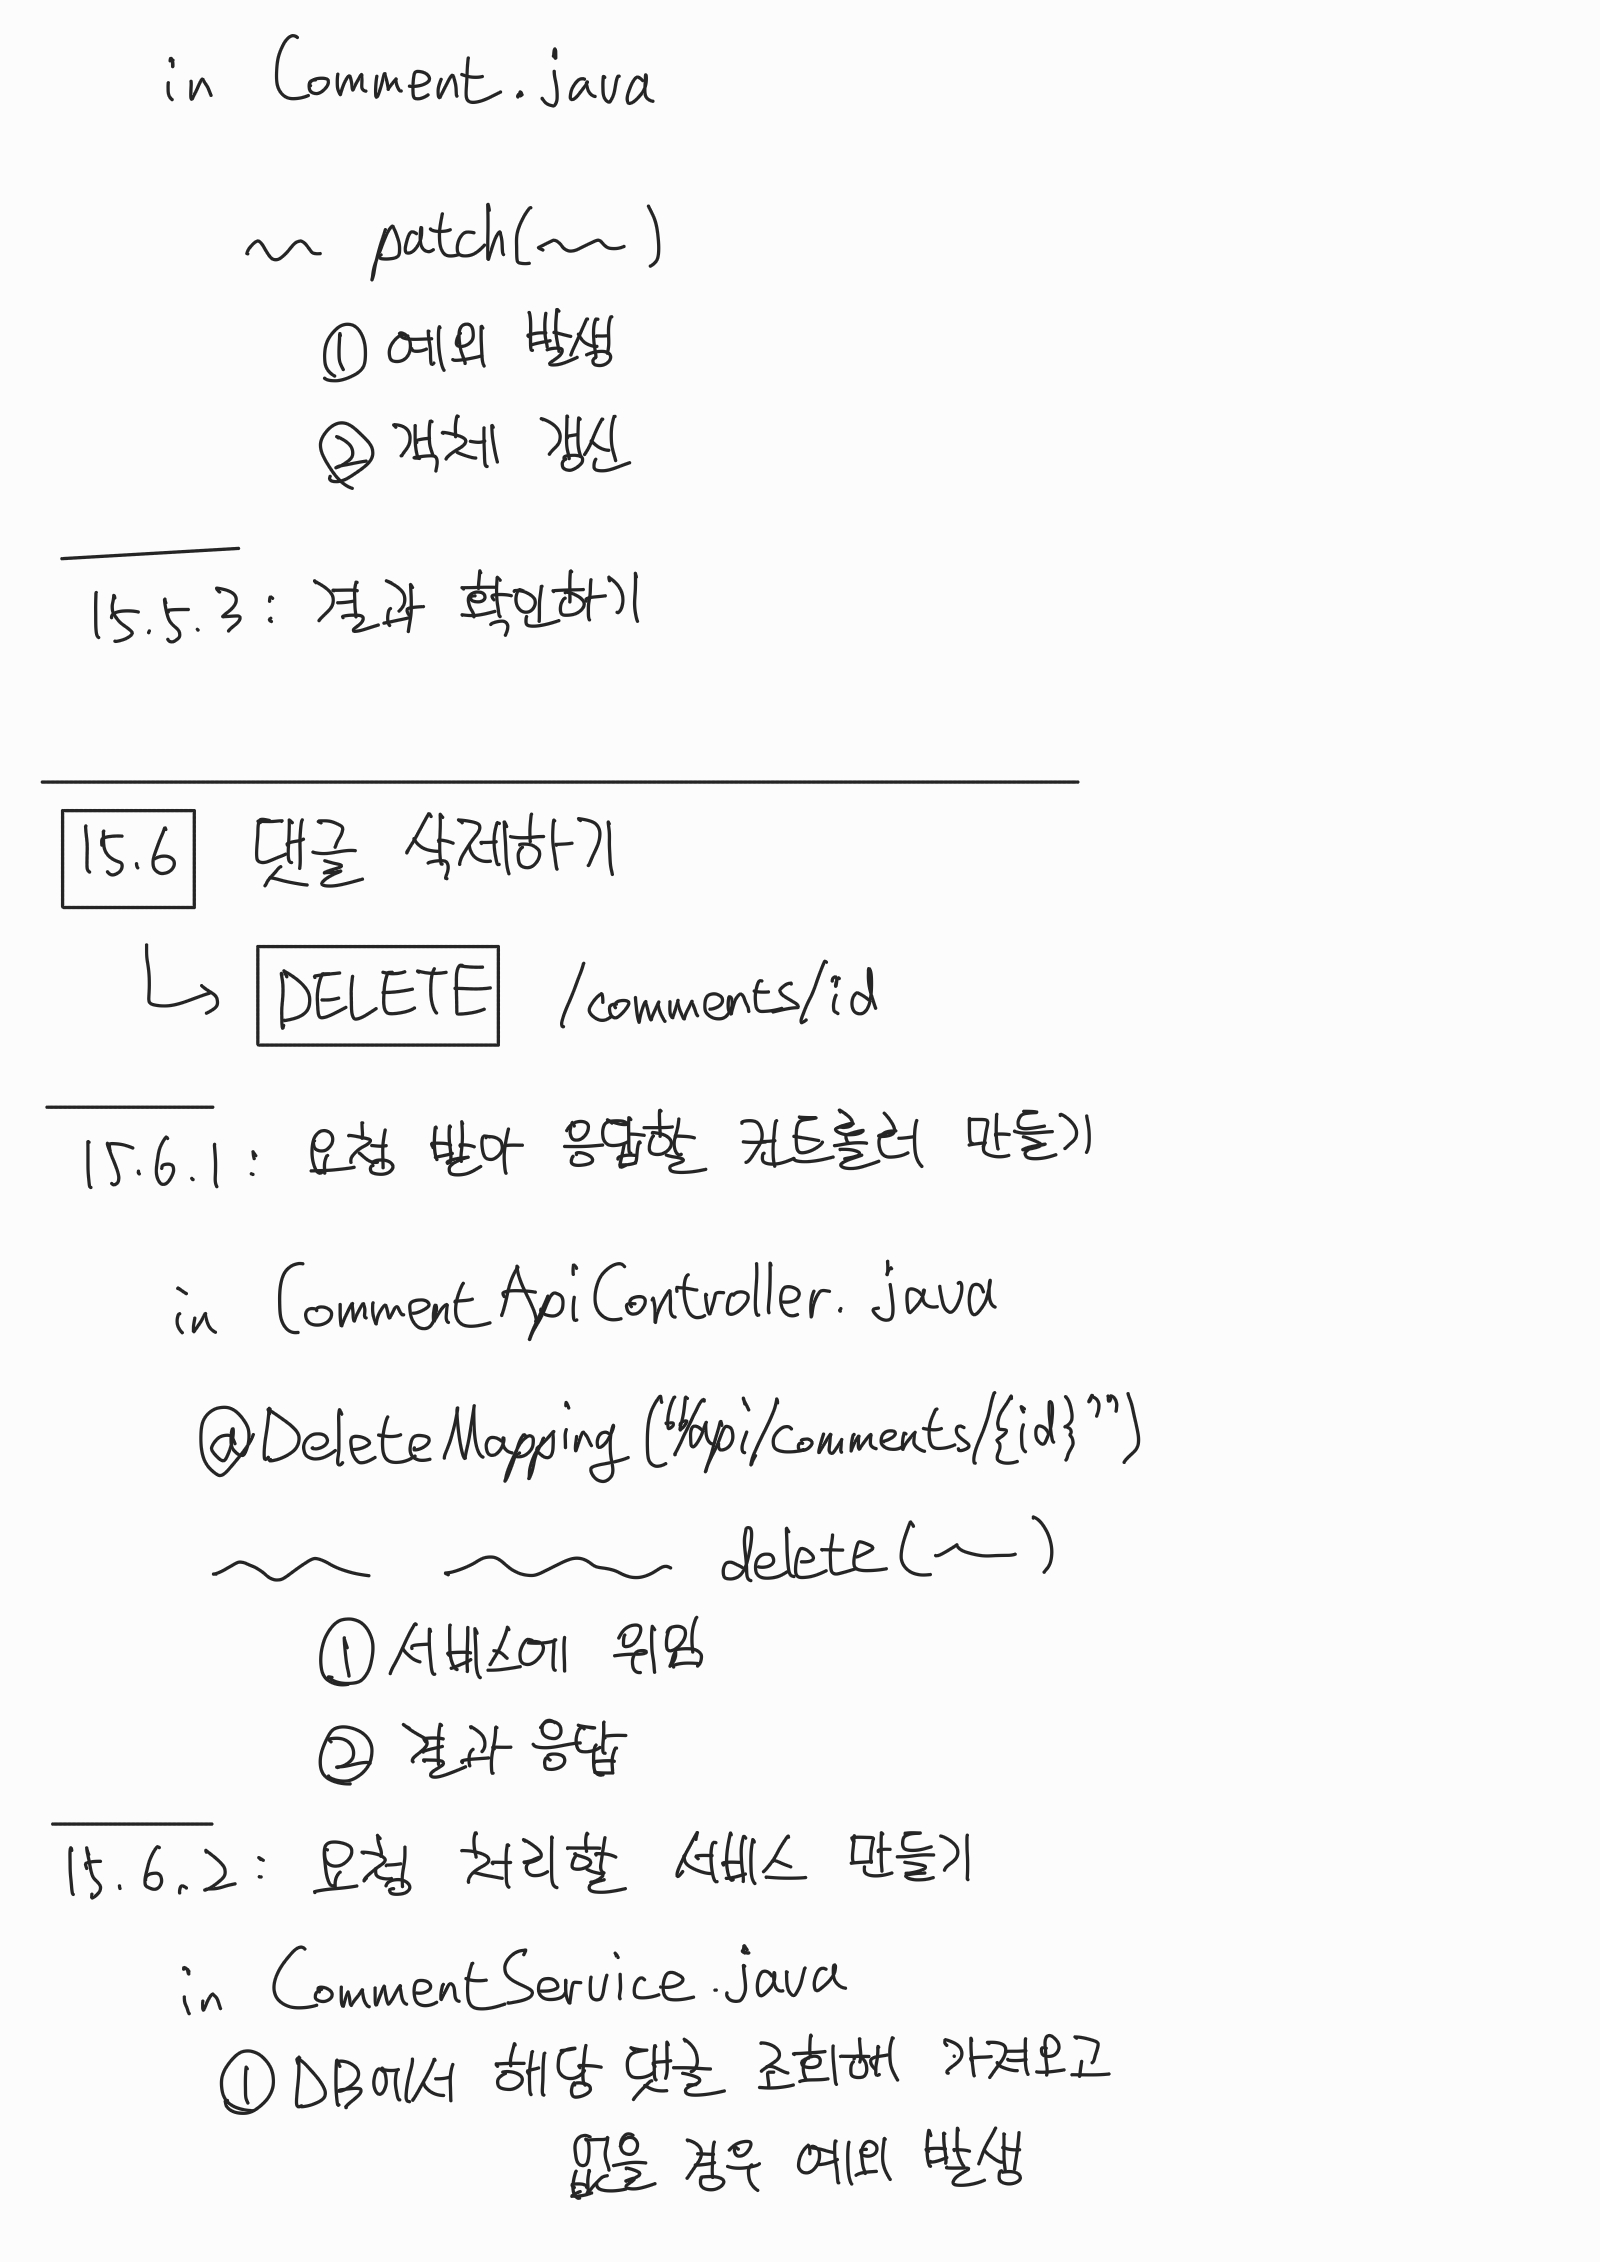 in Comment.java
~~ patch(~~)
① 예외 발생
② 객체 갱신
15.5.3: 결과 확인하기
15.6 댓글 삭제하기
DELETE /comments/id
15.6.1: 요청 받아 응답할 컨트롤러 만들기
in CommentApiController.java
@DeleteMapping("/api/comments/{id}")
~~ ~~ delete(~)
① 서비스에 위임
② 결과 응답
15.6.2: 요청 처리할 서비스 만들기
in CommentService.java
① DB에서 해당 댓글 조회해 가져오고
없을 경우 예외 발생